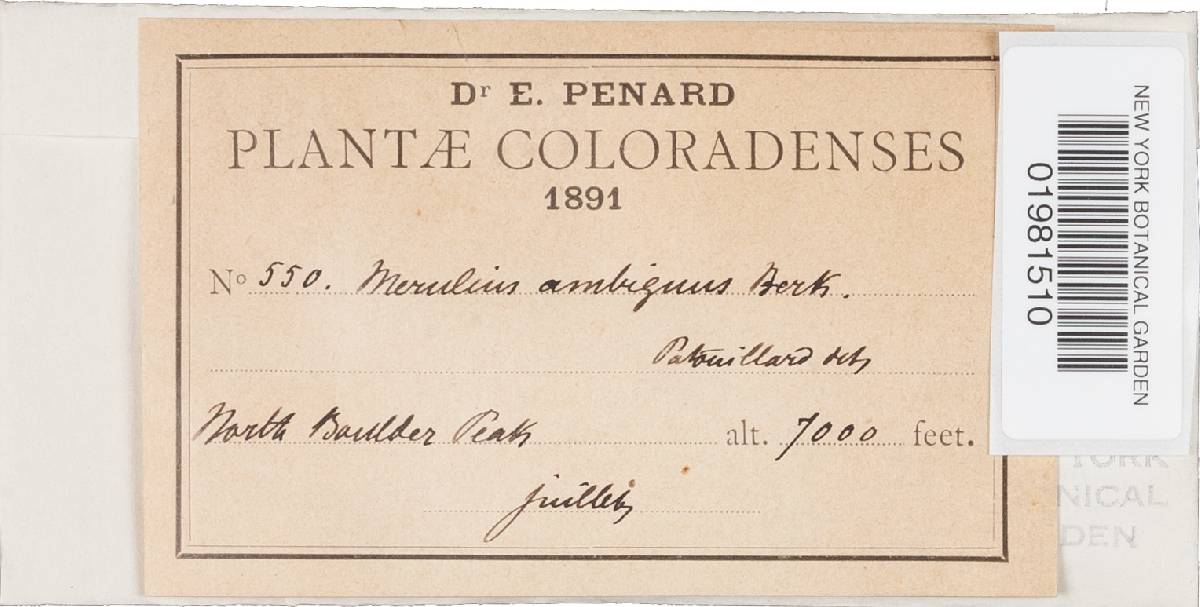 Dr E. PENARD
PLANTÆ COLORADENSES
1891
No 550. Merulius ambiguus Berk.
Patouillard det
North Boulder Peak alt. 7000 feet.
juillet
NEW YORK BOTANICAL GARDEN
01981510
YORK
NICAL
DEN